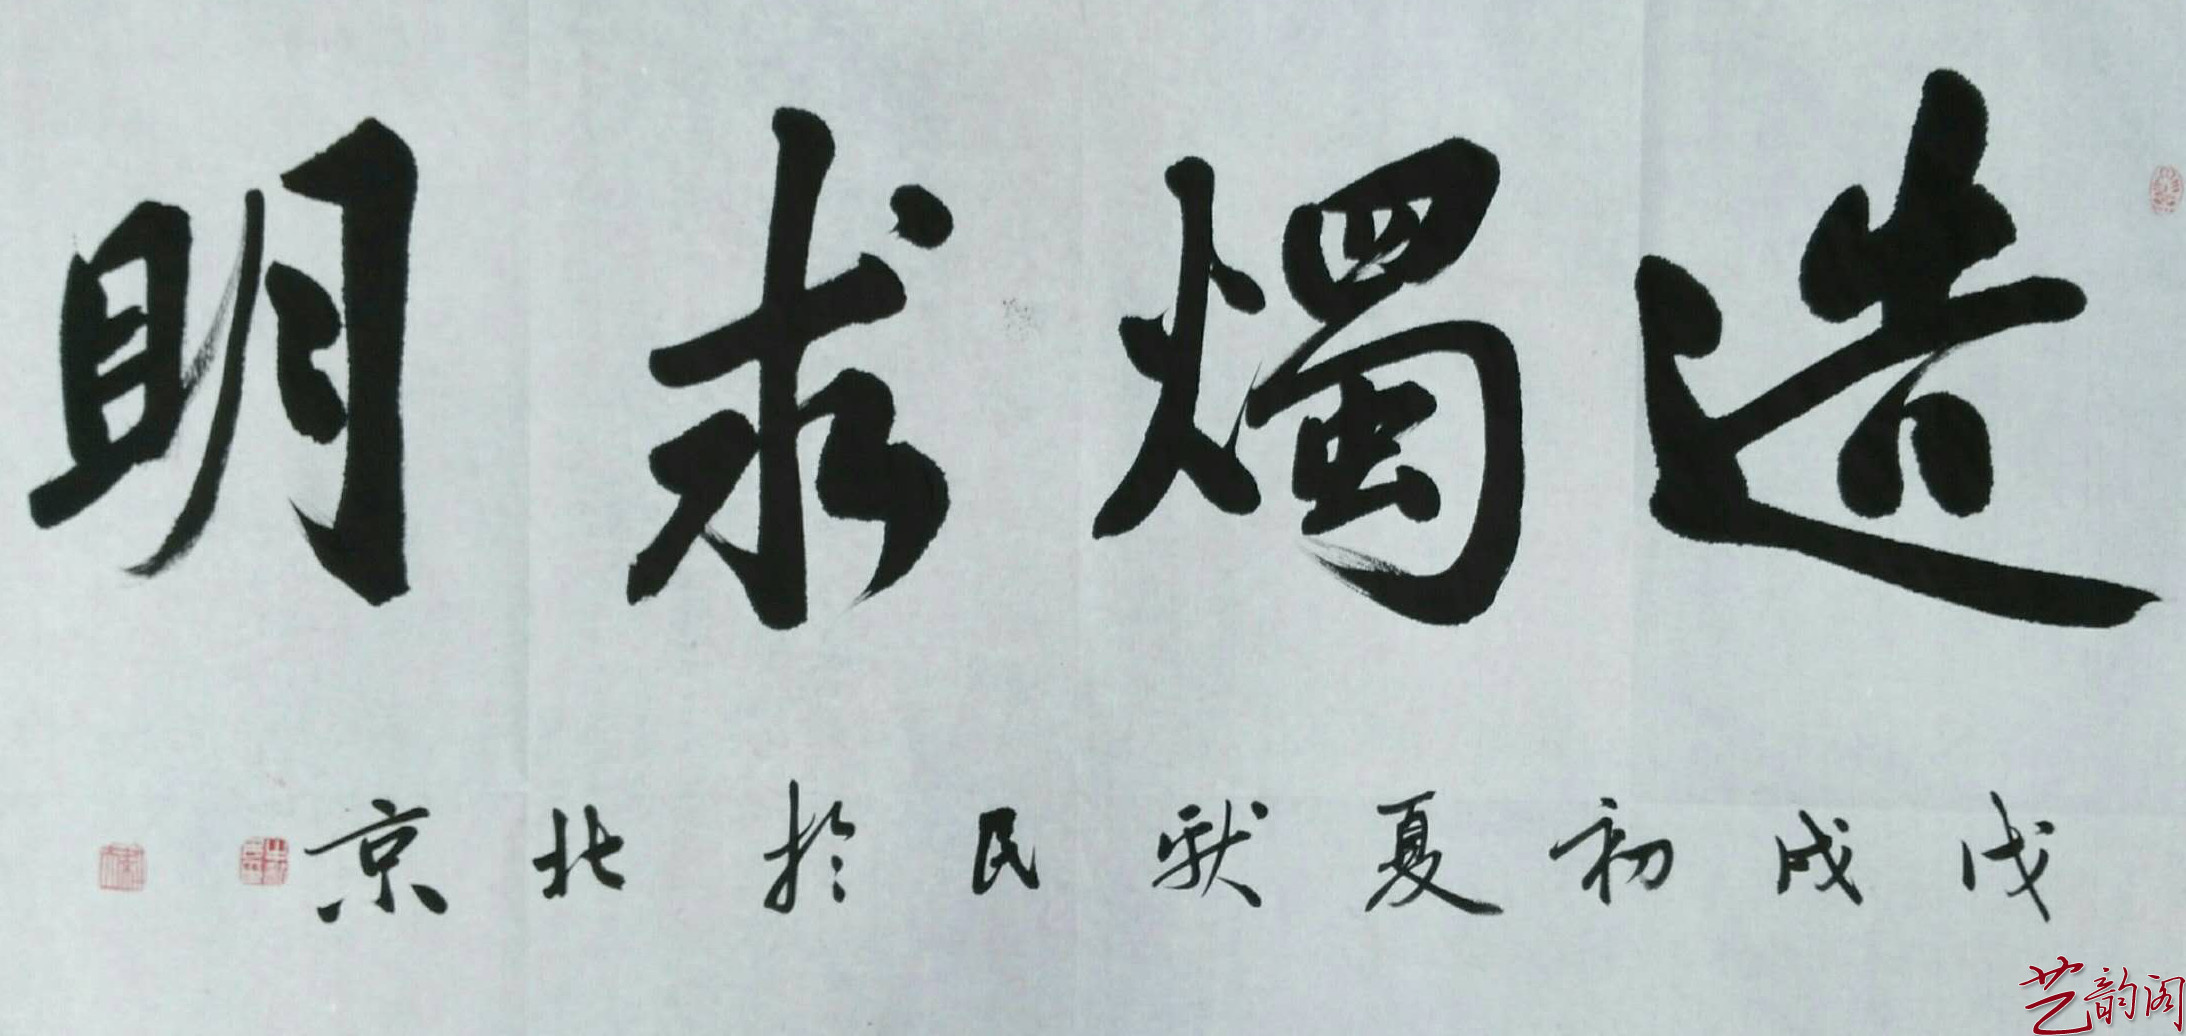 造燭求明
戊戌初夏獻民於北京
艺韵阁